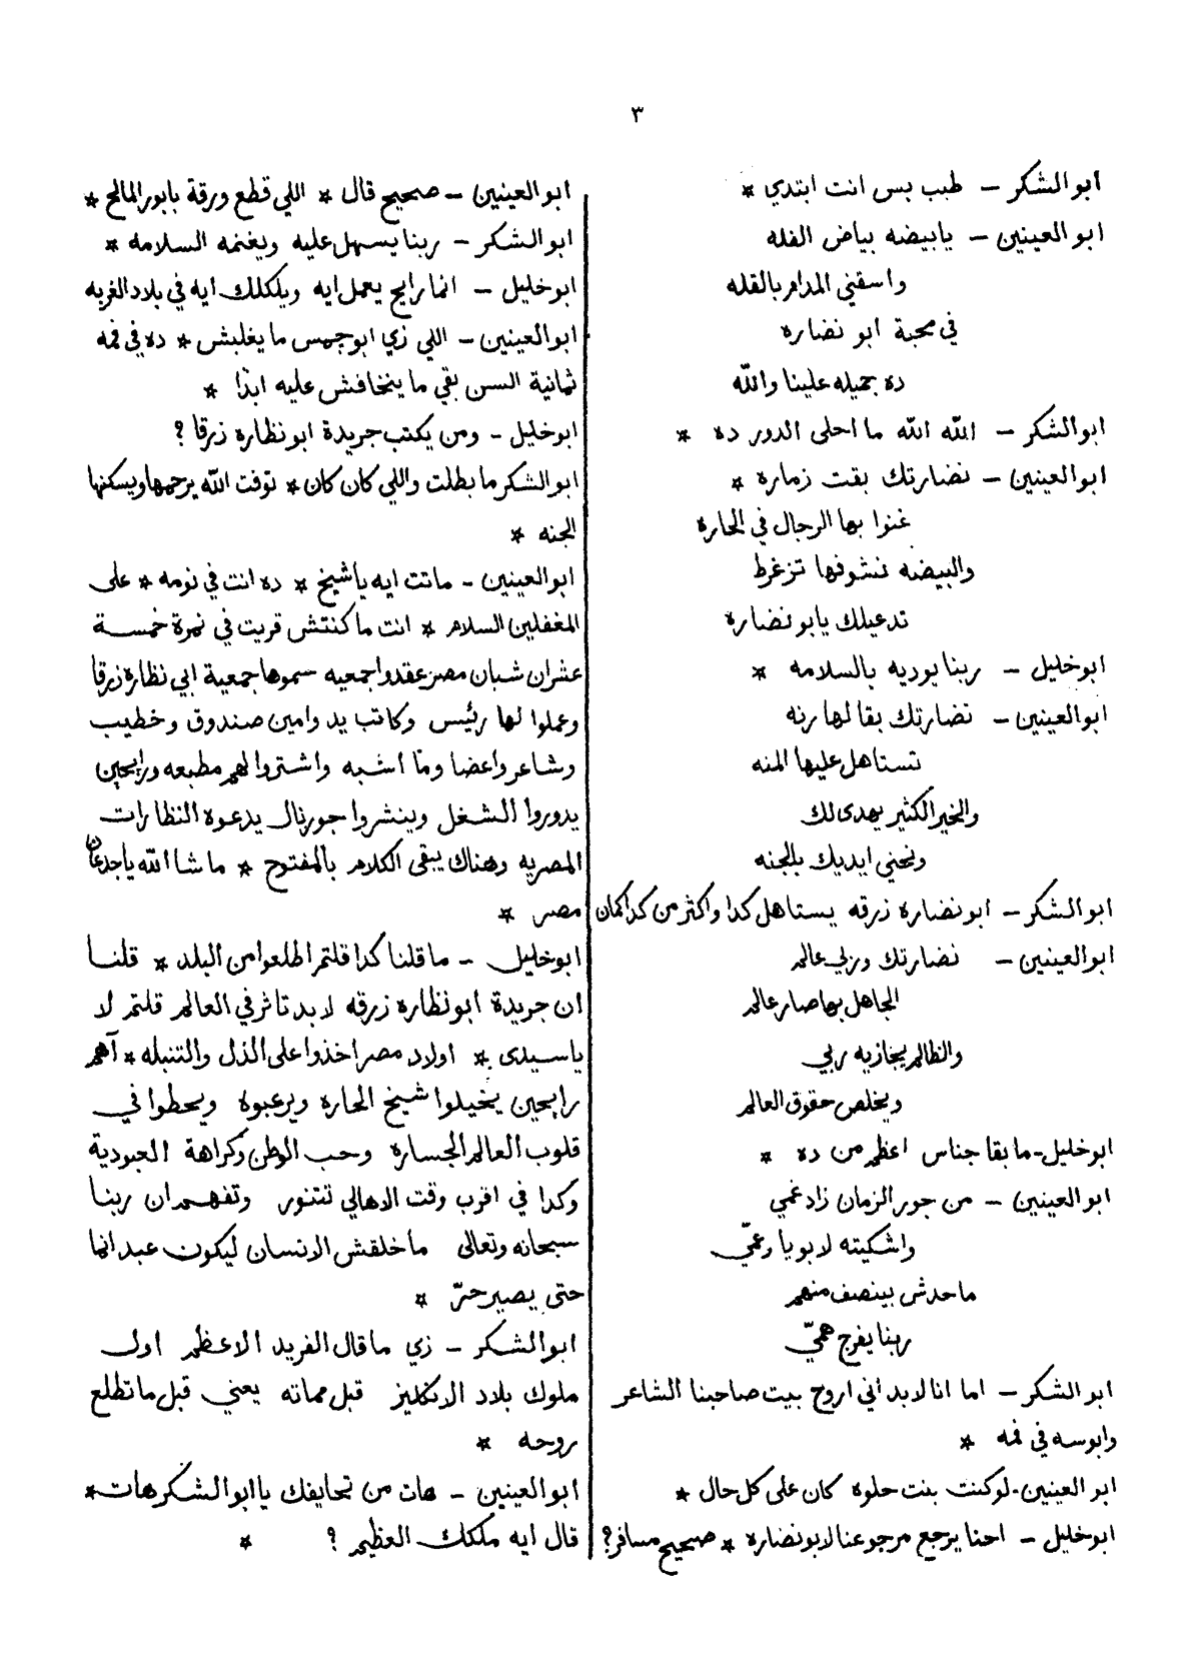 ٣
ابو الشكر – طيب بس انت ابتدي *
ابو العينين – يابيضه بياض الفله
واسقني المدام بالقله
في محبة ابو نضاره
ده جميله علينا والله
ابو الشكر – الله الله ما احلى الدور ده *
ابو العينين – نضارتك بقت زماره *
غنوا بها الرجال في الحاره
والبيضه نشوفها تزغرط
تدعيلك يابو نضاره
ابوخليل – ربنا يوديه بالسلامه *
ابو العينين – نضارتك بقا لها رنه
تستاهل عليها المنه
والخير الكثير يهدى لك
ونحني ايديك بالجنه
ابو الشكر – ابو نضاره زرقه يستاهل كدا واكثر من كدا كمان
ابو العينين – نضارتك وربي عالم
الجاهل بها صار عالم
والظالم يجازيه ربي
ويخلص حقوق العالم
ابوخليل – ما بقا جناس اعظم من ده *
ابو العينين – من جور الزمان زاد غمي
واشكيته لابويا وعمّي
ماحدش بينصف منهم
ربنا يفرج همّي
ابو الشكر – اما انا لابد أني اروح بيت صاحبنا الشاعر
وابوسه في فمه *
ابو العينين – لو كنت بنت حلوه كان على كل حال *
ابوخليل – احنا يرجع مرجوعنا لابو نضاره * صحيح مسافر؟
ابو العينين – صحيح قال * اللي قطع ورقة بابور المالح *
ابو الشكر – ربنا يسهل عليه ويغنمه السلامه *
ابوخليل – انما رايح يعمل ايه ويلكلك ايه في بلاد الغربه
ابو العينين – اللي زي ابو جمس ما يغلبش * ده في فمه
ثمانية السن بقي ما ينخافش عليه ابدًا *
ابوخليل – ومن يكتب جريدة ابو نظاره زرقا ؟
ابو الشكر ما بطلت واللي كان كان * توفت الله يرحمها ويسكنها
الجنه *
ابو العينين – ماتت ايه ياشيخ * ده انت في نومه * على
المغفلين السلام * انت ما كنتش قريت في نمرة خمسة
عشر ان شبان مصر عقدوا جمعيه سموها جمعية ابي نظاره زرقا
وعملوا لها رئيس وكاتب يد وامين صندوق وخطيب
وشاعر واعضا وما اشبه واشتروا لهم مطبعه ورايحين
يدوروا الشغل وينشروا جورنال يدعوه النظارات
المصريه وهناك يبقى الكلام بالمفتوح * ما شا الله ياجدعان
مصر *
ابوخليل – ما قلنا كدا قلتم اطلعوا من البلد * قلنا
ان جريدة ابو نظاره زرقه لابد تاثر في العالم قلتم لا
ياسيدى * اولاد مصر اخذوا على الذل والتنبله * أهم
رايحين يخيلوا شيخ الحاره ويرعبوه ويحطوا في
قلوب العالم الجساره وحب الوطن وكراهة العبودية
وكدا في اقرب وقت الاهالي تتنور وتفهم ان ربنا
سبحانه وتعالى ما خلقش الانسان ليكون عبد انما
حتى يصير حرّ *
ابو الشكر – زي ما قال الفريد الاعظم اول
ملوك بلاد الانكليز قبل مماته يعني قبل ما تطلع
روحه *
ابو العينين – هات من تحايفك يا ابو الشكر هات *
قال ايه ملكك العظيم ؟ *